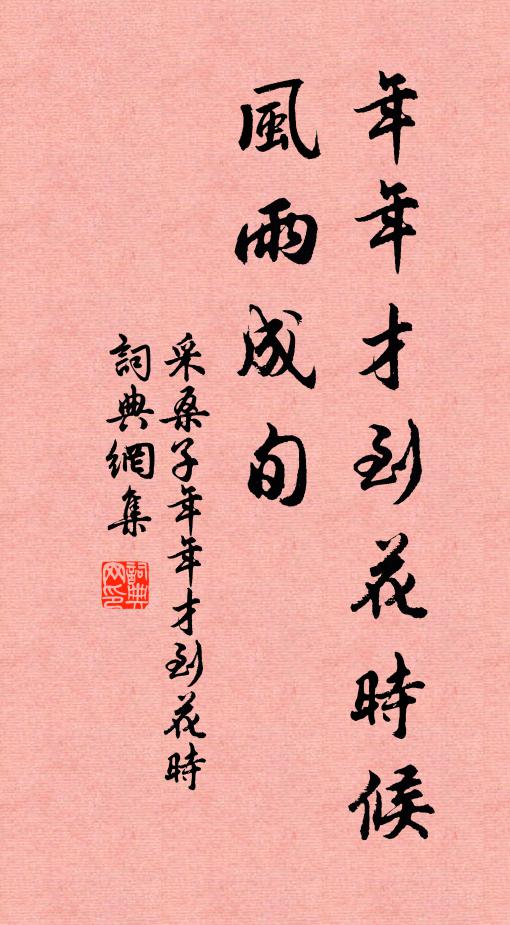 年年才到花時候
風雨成旬
采桑子年年才到花時
詞典網集
詞典网印